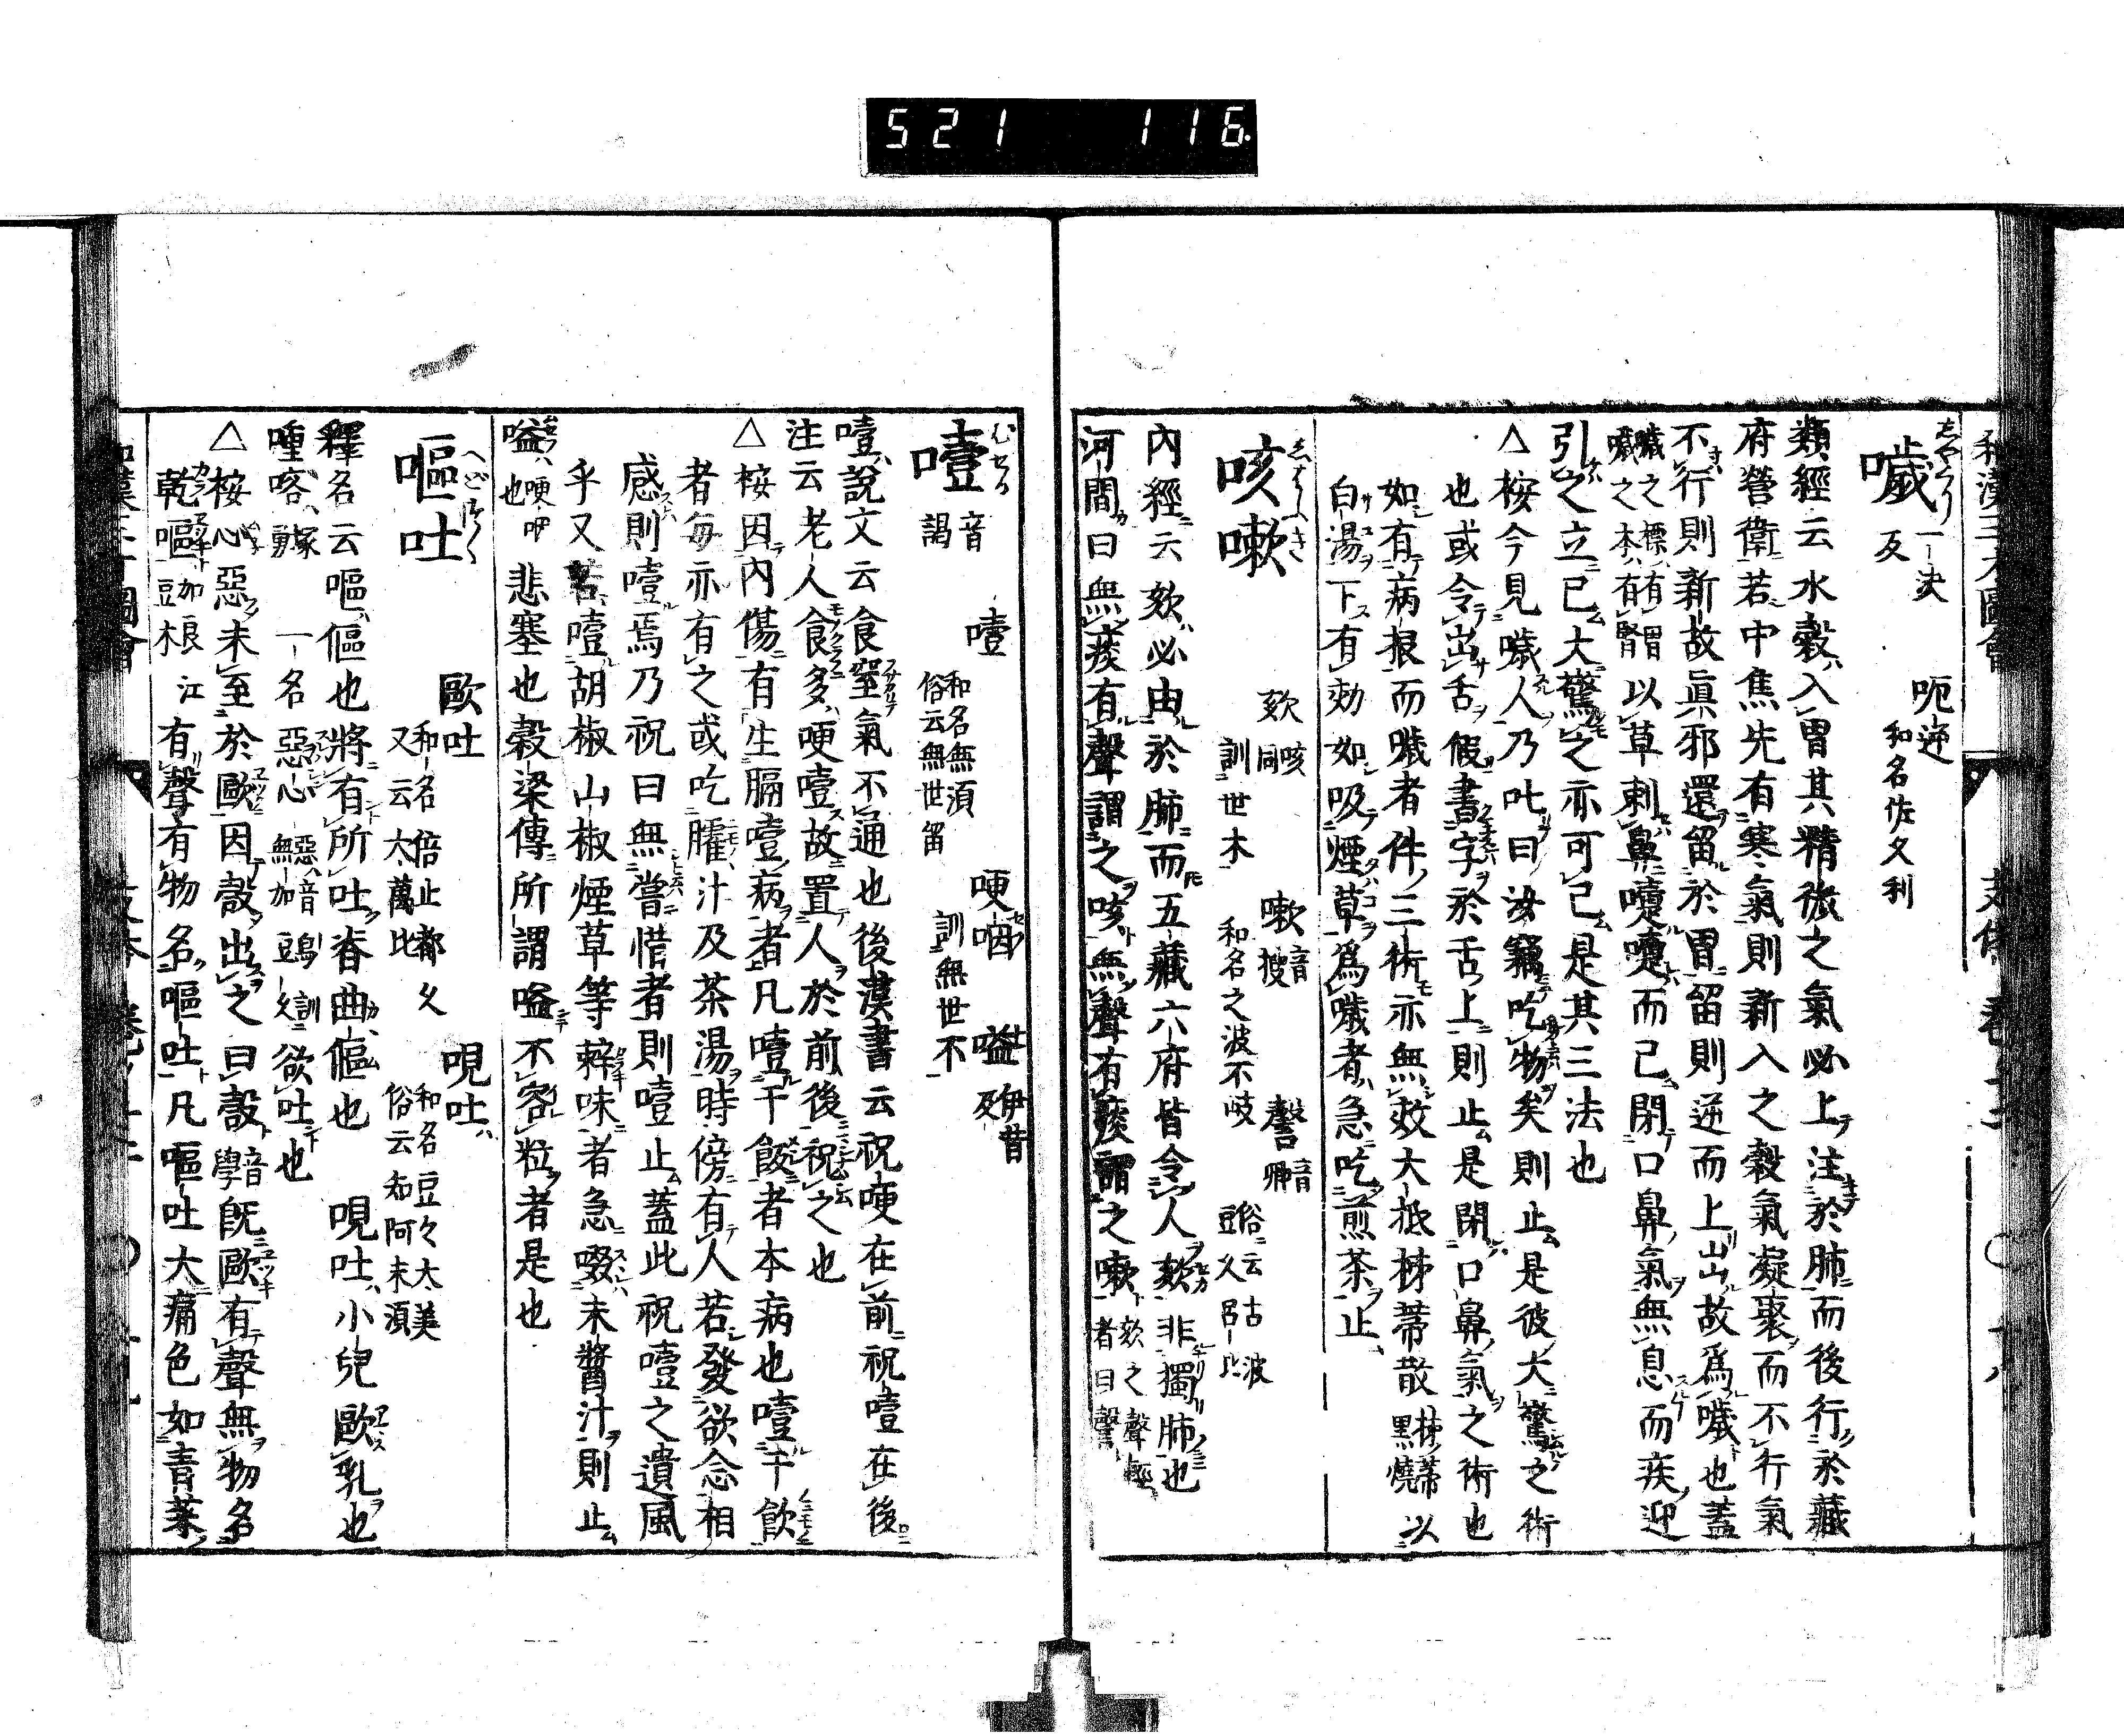 521 116
和漢三才圖會
噦 しやくり 一決反 呃逆 和名佐久利
類經云水穀入胃其精微之氣必上注於肺而後行於藏
府營衛若中焦先有寒氣則新入之穀氣凝聚而不行氣
不行則新故眞邪還留於胃留則逆而上出故爲噦也蓋
噦之標有胃噦之本有腎以草刺鼻嚏嚏而已閉口鼻氣無息而疾迎
引之立已大驚之亦可已是其三法也
△桉今見噦人乃叱曰汝竊吃物矣則止是彼大驚之術
也或令出舌假書字於舌上則止是閉口鼻氣之術也
如有病根而噦者件三術亦無效大抵柹蒂散柹蒂黒燒以
白湯下有効如吸煙草爲噦者急吃煎茶止
咳嗽 欬咳同 訓世木 嗽音搜 和名之波不岐 謦音卿 俗云古波豆久呂比
內經云欬必由於肺而五藏六府皆令人欬非獨肺也
河間曰無痰有聲謂之咳無聲有痰謂之嗽欬之聲輕者曰謦
噎 むせる 音謁 噎 和名無須 俗云無世留 哽咽 訓無世不 嗌 伊昔反
噎說文云食窒氣不通也後漢書云祝哽在前祝噎在後
注云老人食多哽噎故置人於前後祝之也
△桉因內傷有生膈噎病者凡噎干飯者本病也噎干飲
者毎亦有之或吃臛汁及茶湯時傍有人若發欲念相
感則噎焉乃祝曰無嘗惜者則噎止蓋此祝噎之遺風
乎又苦噎胡椒山椒煙草等辣味者急啜未醬汁則止
嗌哽咽也 悲塞也穀梁傳所謂嗌不容粒者是也
嘔吐 へどつく 歐吐 和名倍止都久 又云太萬比 哯吐 和名豆々太美 俗云知阿末須
釋名云嘔傴也將有所吐脊曲傴也 哯吐小兒歐乳也
喠㗇 一名惡心 惡音鳥 訓無加豆久 欲吐也
△桉心惡未至於歐因㱿出之曰㱿音學旣歐有聲無物名
乾嘔加良豆木 有聲有物名嘔吐凡嘔吐大痛色如青菜